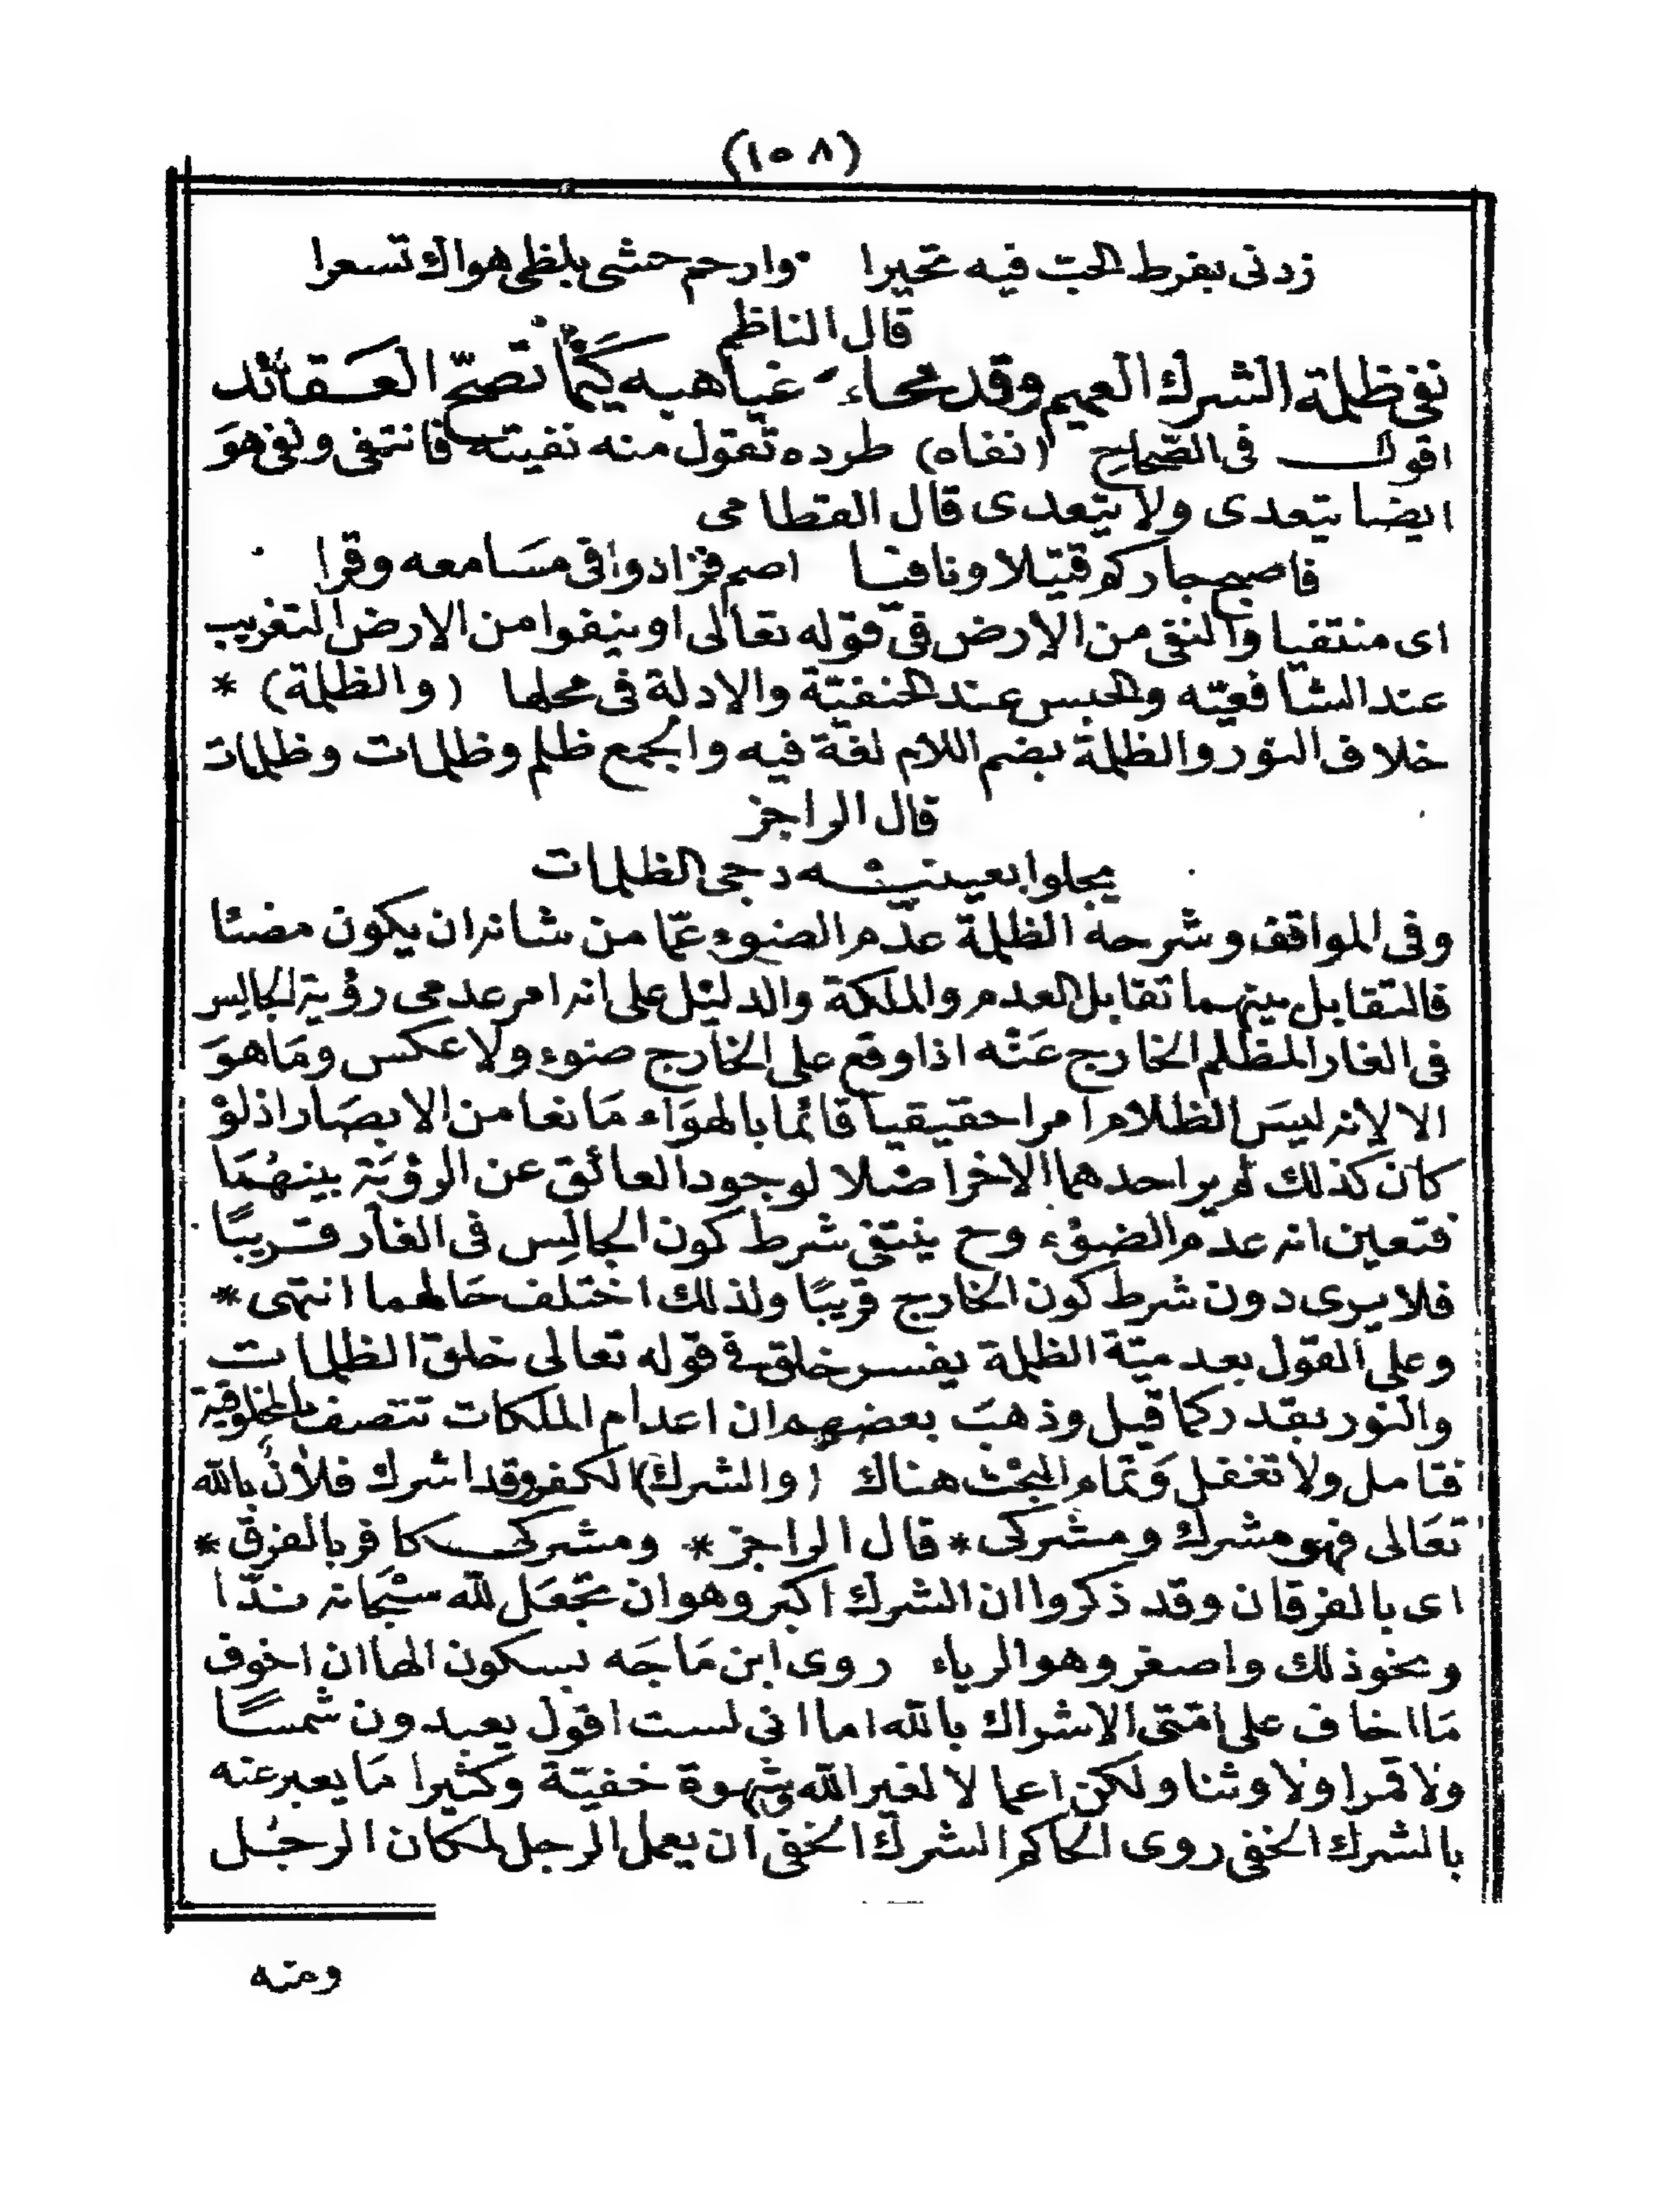 (١٥٨)
زدنى بفرط الحب فيه تحيرا وارحم حشى بلظى هواك تسعرا
قال الناظم
نفى ظلمة الشرك العميم وقد محاء غياهبه كيما تصحّ العقائد
اقول فى الصحاح (نفاه) طرده تقول منه نفيته فانتفى ونفى هو
ايضا يتعدى ولا يتعدى قال القطامى
فاصبح جاركم قتيلا ونافيا اصم فزادوا فى مسامعه وقرا
اى منتفيا والنفى من الارض فى قوله تعالى او ينفوا من الارض التغريب
عند الشافعيّه والحبس عند الحنفيّة والادلة فى محلها (والظلمة) *
خلاف النور والظلمة بضم اللام لغة فيه والجمع ظلم وظلمات وظلمات
قال الراجز
يجلوا بعينيه دجى الظلمات
وفى المواقف وشرحه الظلمة عدم الضوء عمّا من شانه ان يكون مضئا
فالتقابل بينهما تقابل العدم والملكة والدليل على انه امر عدمى رؤية الجالس
فى الغار المظلم الخارج عنه اذا وقع على الخارج ضوء ولا عكس وما هو
الا لانه ليس الظلام امرا حقيقيا قائما بالهواء مانعا من الابصار اذ لو
كان كذلك لم ير احدهما الاخر اصلا لوجود العائق عن الرؤية بينهما
فتعين انه عدم الضوء وح ينتفى شرط كون الجالس فى الغار قريبًا
فلا يرى دون شرط كون الخارج قريبًا ولذلك اختلف حالهما انتهى *
وعلى القول بعدميّة الظلمة يفسر خلق فى قوله تعالى خلق الظلمات
والنور بقدر كما قيل وذهب بعضهم ان اعدام الملكات تتصف بالمخلوقية
فتامل ولا تغفل وتمام البحث هناك (والشرك) الكفر وقد اشرك فلان بالله
تعالى فهو مشرك ومشركى * قال الراجز * ومشركى كافر بالفرق *
اى بالفرقان وقد ذكروا ان الشرك اكبر وهو ان تجعل لله سبحانه ندّا
ونحوذلك واصغر وهو الرياء روى ابن ماجه بسكون الها ان اخوف
ما اخاف على امّتى الاشراك بالله اما انى لست اقول يعبدون شمسًا
ولا قمرا ولا وثنا ولكن اعما لا لغير الله وشهوة خفيّة وكثيرا ما يعبر عنه
بالشرك الخفى روى الحاكم الشرك الخفى ان يعمل الرجل لمكان الرجل
ومنه